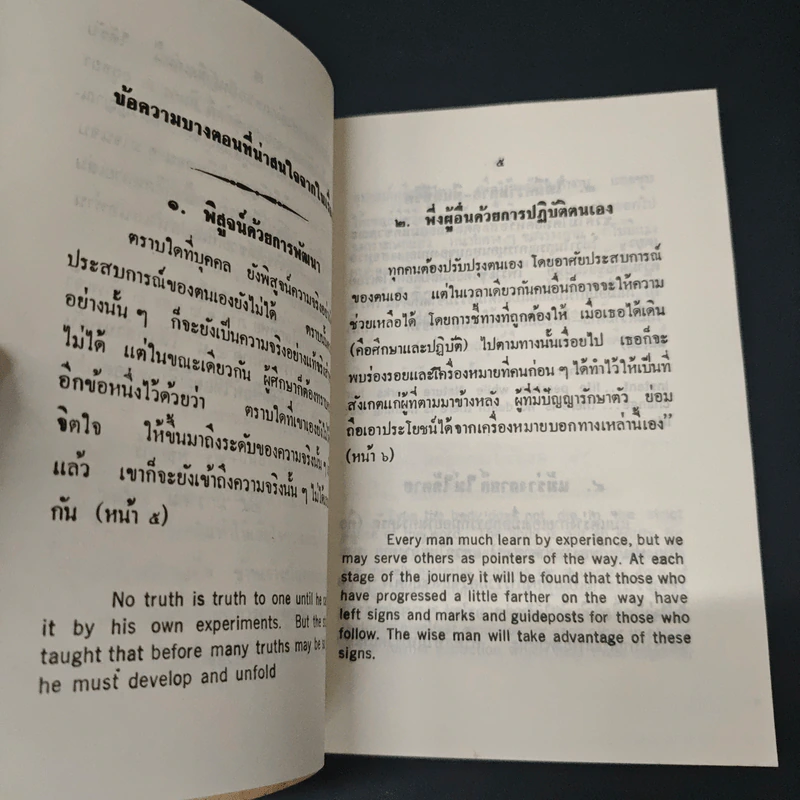 ข้อความบางตอนที่น่าสนใจจากใน
๑. พิสูจน์ด้วยการพัฒนา
ตราบใดที่บุคคล ยังพิสูจน์ความจริง
ประสบการณ์ของตนเองยังไม่ได้
อย่างนั้น ๆ ก็จะยังเป็นความจริงอย่างแท้จริง
ไม่ได้ แต่ในขณะเดียวกัน ผู้ศึกษาก็ต้อง
อีกข้อหนึ่งไว้ด้วยว่า ตราบใดที่เขาเองยัง
จิตใจ ให้ขึ้นมาถึงระดับของความจริงนั้น ๆ
แล้ว เขาก็จะยังเข้าถึงความจริงนั้น ๆ ไม่ได้
กัน (หน้า ๕)
No truth is truth to one until he
it by his own experiments. But the
taught that before many truths may be
he must develop and unfold
๕
๒. พึ่งผู้อื่นด้วยการปฏิบัติตนเอง
ทุกคนต้องปรับปรุงตนเอง โดยอาศัยประสบการณ์
ของตนเอง แต่ในเวลาเดียวกันคนอื่นก็อาจจะให้ความ
ช่วยเหลือได้ โดยการชี้ทางที่ถูกต้องให้ เมื่อเธอได้เดิน
(คือศึกษาและปฏิบัติ) ไปตามทางนั้นเรื่อยไป เธอก็จะ
พบร่องรอยและเครื่องหมายที่คนก่อน ๆ ได้ทำไว้ให้เป็นที่
สังเกตแก่ผู้ที่ตามมาข้างหลัง ผู้ที่มีปัญญารักษาตัว ย่อม
ถือเอาประโยชน์ได้จากเครื่องหมายบอกทางเหล่านี้เอง”
(หน้า ๖)
Every man much learn by experience, but we
may serve others as pointers of the way. At each
stage of the journey it will be found that those who
have progressed a little farther on the way have
left signs and marks and guideposts for those who
follow. The wise man will take advantage of these
signs.